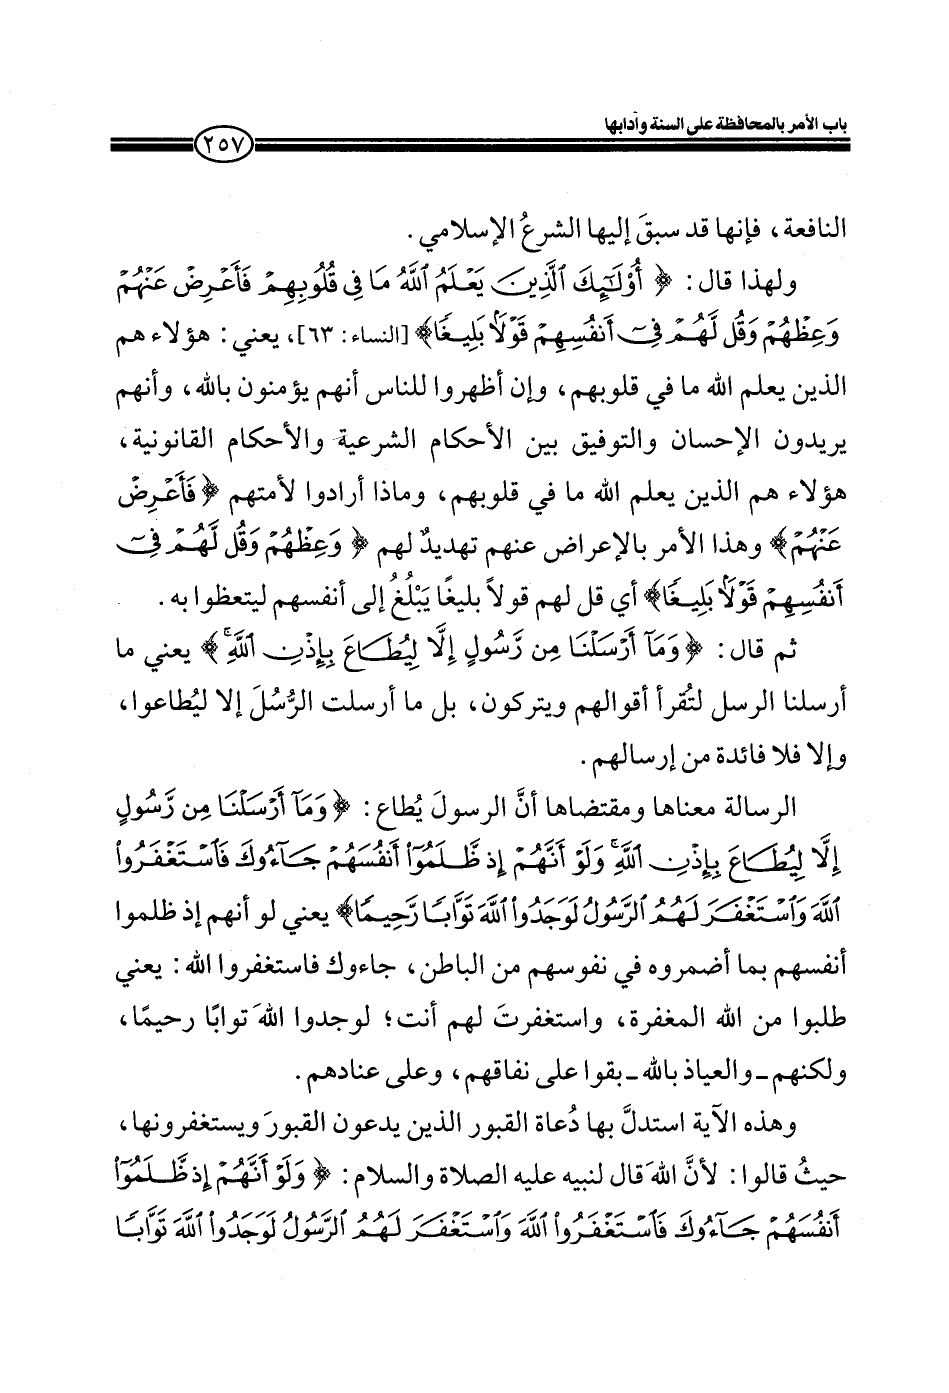 باب الأمر بالمحافظة على السنة وآدابها
٢٥٧
النافعة، فإنها قد سبقَ إليها الشرعُ الإسلامي.
ولهذا قال: ﴿ أُوْلَٰٓئِكَ ٱلَّذِينَ يَعۡلَمُ ٱللَّهُ مَا فِي قُلُوبِهِمۡ فَأَعۡرِضۡ عَنۡهُمۡ
وَعِظۡهُمۡ وَقُل لَّهُمۡ فِيٓ أَنفُسِهِمۡ قَوۡلَۢا بَلِيغٗا﴾ [النساء: ٦٣]، يعني: هؤلاء هم
الذين يعلم الله ما في قلوبهم، وإن أظهروا للناس أنهم يؤمنون بالله، وأنهم
يريدون الإحسان والتوفيق بين الأحكام الشرعية والأحكام القانونية،
هؤلاء هم الذين يعلم الله ما في قلوبهم، وماذا أرادوا لأمتهم ﴿فَأَعۡرِضۡ
عَنۡهُمۡ﴾ وهذا الأمر بالإعراض عنهم تهديدٌ لهم ﴿ وَعِظۡهُمۡ وَقُل لَّهُمۡ فِيٓ
أَنفُسِهِمۡ قَوۡلَۢا بَلِيغٗا﴾ أي قل لهم قولاً بليغًا يَبْلُغُ إلى أنفسهم ليتعظوا به.
ثم قال: ﴿وَمَآ أَرۡسَلۡنَا مِن رَّسُولٍ إِلَّا لِيُطَاعَ بِإِذۡنِ ٱللَّهِۚ﴾ يعني ما
أرسلنا الرسل لتُقرأ أقوالهم ويتركون، بل ما أرسلت الرُّسُلَ إلا ليُطاعوا،
وإلا فلا فائدة من إرسالهم.
الرسالة معناها ومقتضاها أنَّ الرسولَ يُطاع: ﴿وَمَآ أَرۡسَلۡنَا مِن رَّسُولٍ
إِلَّا لِيُطَاعَ بِإِذۡنِ ٱللَّهِۚ وَلَوۡ أَنَّهُمۡ إِذ ظَّلَمُوٓاْ أَنفُسَهُمۡ جَآءُوكَ فَٱسۡتَغۡفَرُواْ
ٱللَّهَ وَٱسۡتَغۡفَرَ لَهُمُ ٱلرَّسُولُ لَوَجَدُواْ ٱللَّهَ تَوَّابٗا رَّحِيمٗا﴾ يعني لو أنهم إذ ظلموا
أنفسهم بما أضمروه في نفوسهم من الباطن، جاءوك فاستغفروا الله: يعني
طلبوا من الله المغفرة، واستغفرتَ لهم أنت؛ لوجدوا اللهَ توابًا رحيمًا،
ولكنهم ـ والعياذ بالله ـ بقوا على نفاقهم، وعلى عنادهم.
وهذه الآية استدلَّ بها دُعاة القبور الذين يدعون القبورَ ويستغفرونها،
حيثُ قالوا: لأنَّ اللهَ قال لنبيه عليه الصلاة والسلام: ﴿ وَلَوۡ أَنَّهُمۡ إِذ ظَّلَمُوٓاْ
أَنفُسَهُمۡ جَآءُوكَ فَٱسۡتَغۡفَرُواْ ٱللَّهَ وَٱسۡتَغۡفَرَ لَهُمُ ٱلرَّسُولُ لَوَجَدُواْ ٱللَّهَ تَوَّابٗا